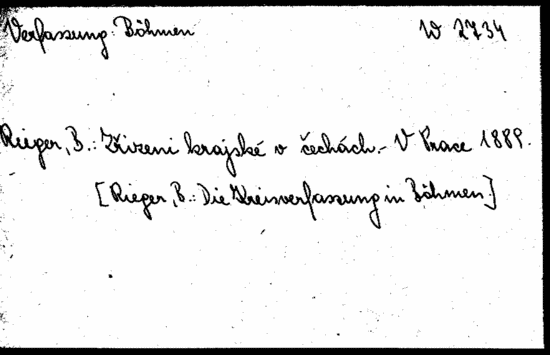 Verfassung: Böhmen W 2734
Rieger, B.: Zřizeni krajské v čechách.- V Praze 1889.
[Rieger, B.: Die Kreisverfassung in Böhmen.]